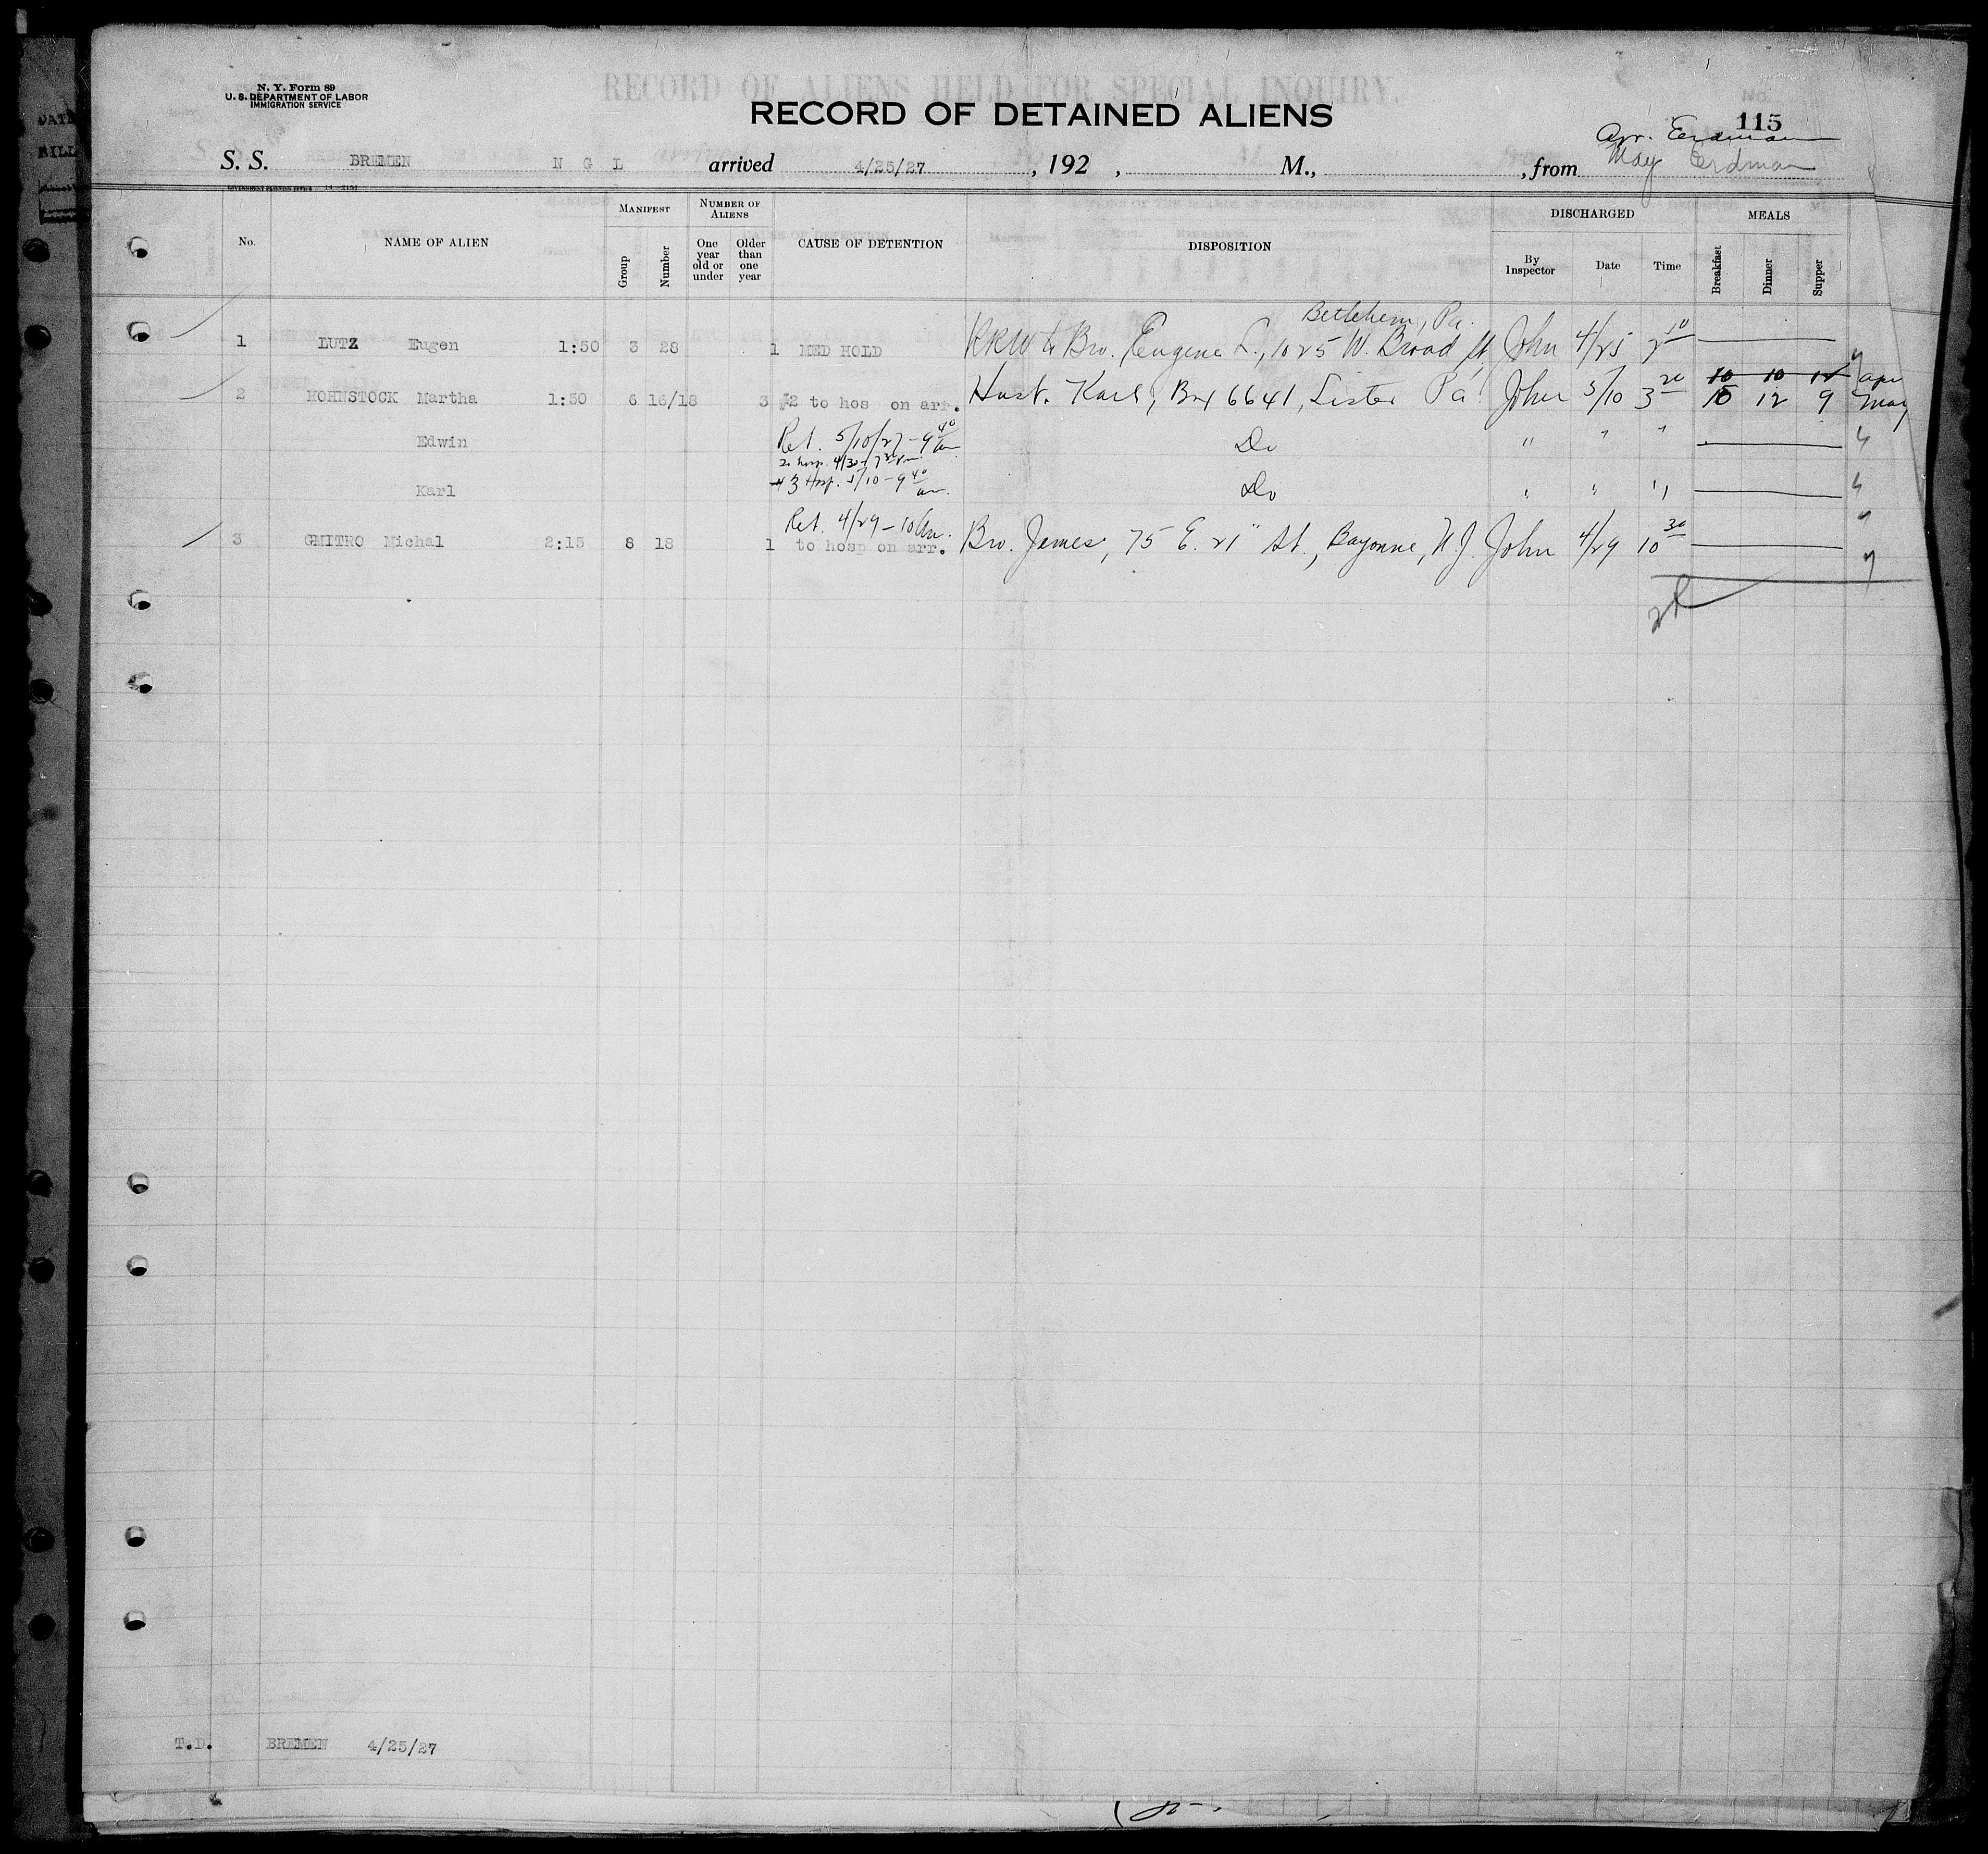 N. Y. Form 89
U. S. DEPARTMENT OF LABOR
IMMIGRATION SERVICE
RECORD OF ALIENS HELD FOR SPECIAL INQUIRY.
RECORD OF DETAINED ALIENS
115
Apr. Erdman
S. S. BREMEN N G L arrived 4/25/27, 192 , M., , from May Erdman
No. NAME OF ALIEN MANIFEST Group Number NUMBER OF ALIENS One year old or under Older than one year CAUSE OF DETENTION DISPOSITION DISCHARGED By Inspector Date Time MEALS Breakfast Dinner Supper
Bethlehem, Pa.
1 LUTZ Eugen 1:50 3 28 1 MED HOLD RRW to Bro. Eugene L., 1025 W. Broad St John 4/25 2 10
10 10 11 Apr
2 HOHNSTOCK Martha 1:50 6 16/18 3 #2 to hos on arr. Husb. Karl, Box 6641, Lister Pa. John 5/10 3 20 10 12 9 May
Edwin Ret. 5/10/27 - 9 40 am Do " " "
2 hosp. 4/30 - 7 30 pm
Karl #3 Hosp. 5/10 - 9 40 am. Do " " "
Ret. 4/29 - 10 am.
3 GMITRO Michal 2:15 8 18 1 to hosp on arr. Bro. James, 75 E. 21" St., Bayonne, N.J. John 4/29 10 30
T.D. BREMEN 4/25/27